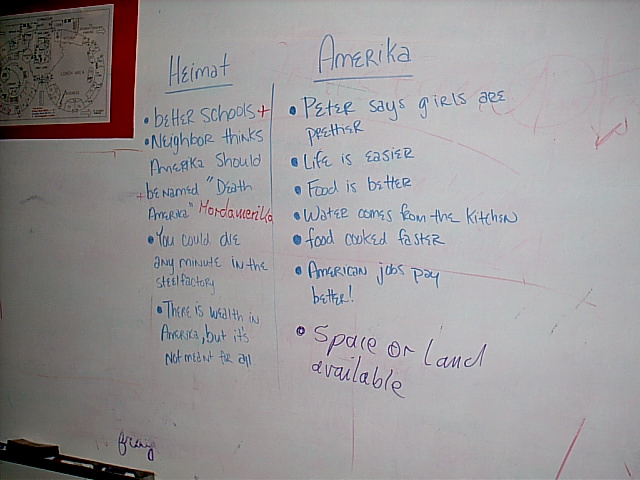 Heimat
• better schools +
• Neighbor thinks
Amerika should
+ be named "Death
Amerika" Mordamerika
• You could die
any minute in the
steelfactory
• There is wealth in
Amerika, but it's
not meant for all
Amerika
• Peter says girls are
prettier
• Life is easier
• Food is better
• Water comes from the kitchen
• food cooked faster
• American jobs pay
better!
• Space or land
available